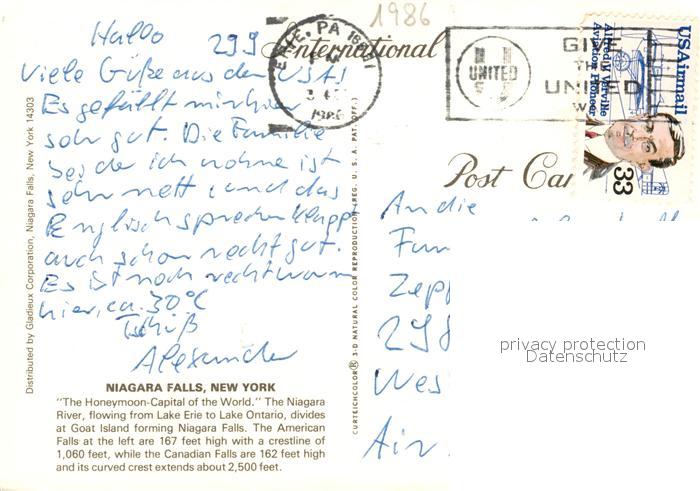 1986
Hallo 29 9
Viele Grüße aus den USA!
Es gefällt mir hier
sehr gut. Die Familie
bei der ich wohne ist
sehr nett und das
Englisch sprechen klappt
auch schon recht gut.
Es ist noch recht warm
hier, ca. 30°C
Tschüß
Alexander
NIAGARA FALLS, NEW YORK
"The Honeymoon-Capital of the World." The Niagara
River, flowing from Lake Erie to Lake Ontario, divides
at Goat Island forming Niagara Falls. The American
Falls at the left are 167 feet high with a crestline of
1,060 feet, while the Canadian Falls are 162 feet high
and its curved crest extends about 2,500 feet.
Distributed by Gladieux Corporation, Niagara Falls, New York 14303
CURTEICHCOLOR® 3-D NATURAL COLOR REPRODUCTION (REG. U. S. A. PAT. OFF.)
International
ERIE, PA
PM
1986
UNITED
GIVE
THE
UNITED
WAY
USAirmail
Alfred V. Verville
Aviation Pioneer
33
Post Car
An die
Fam
Zepp
298
Wes
Air
privacy protection
Datenschutz